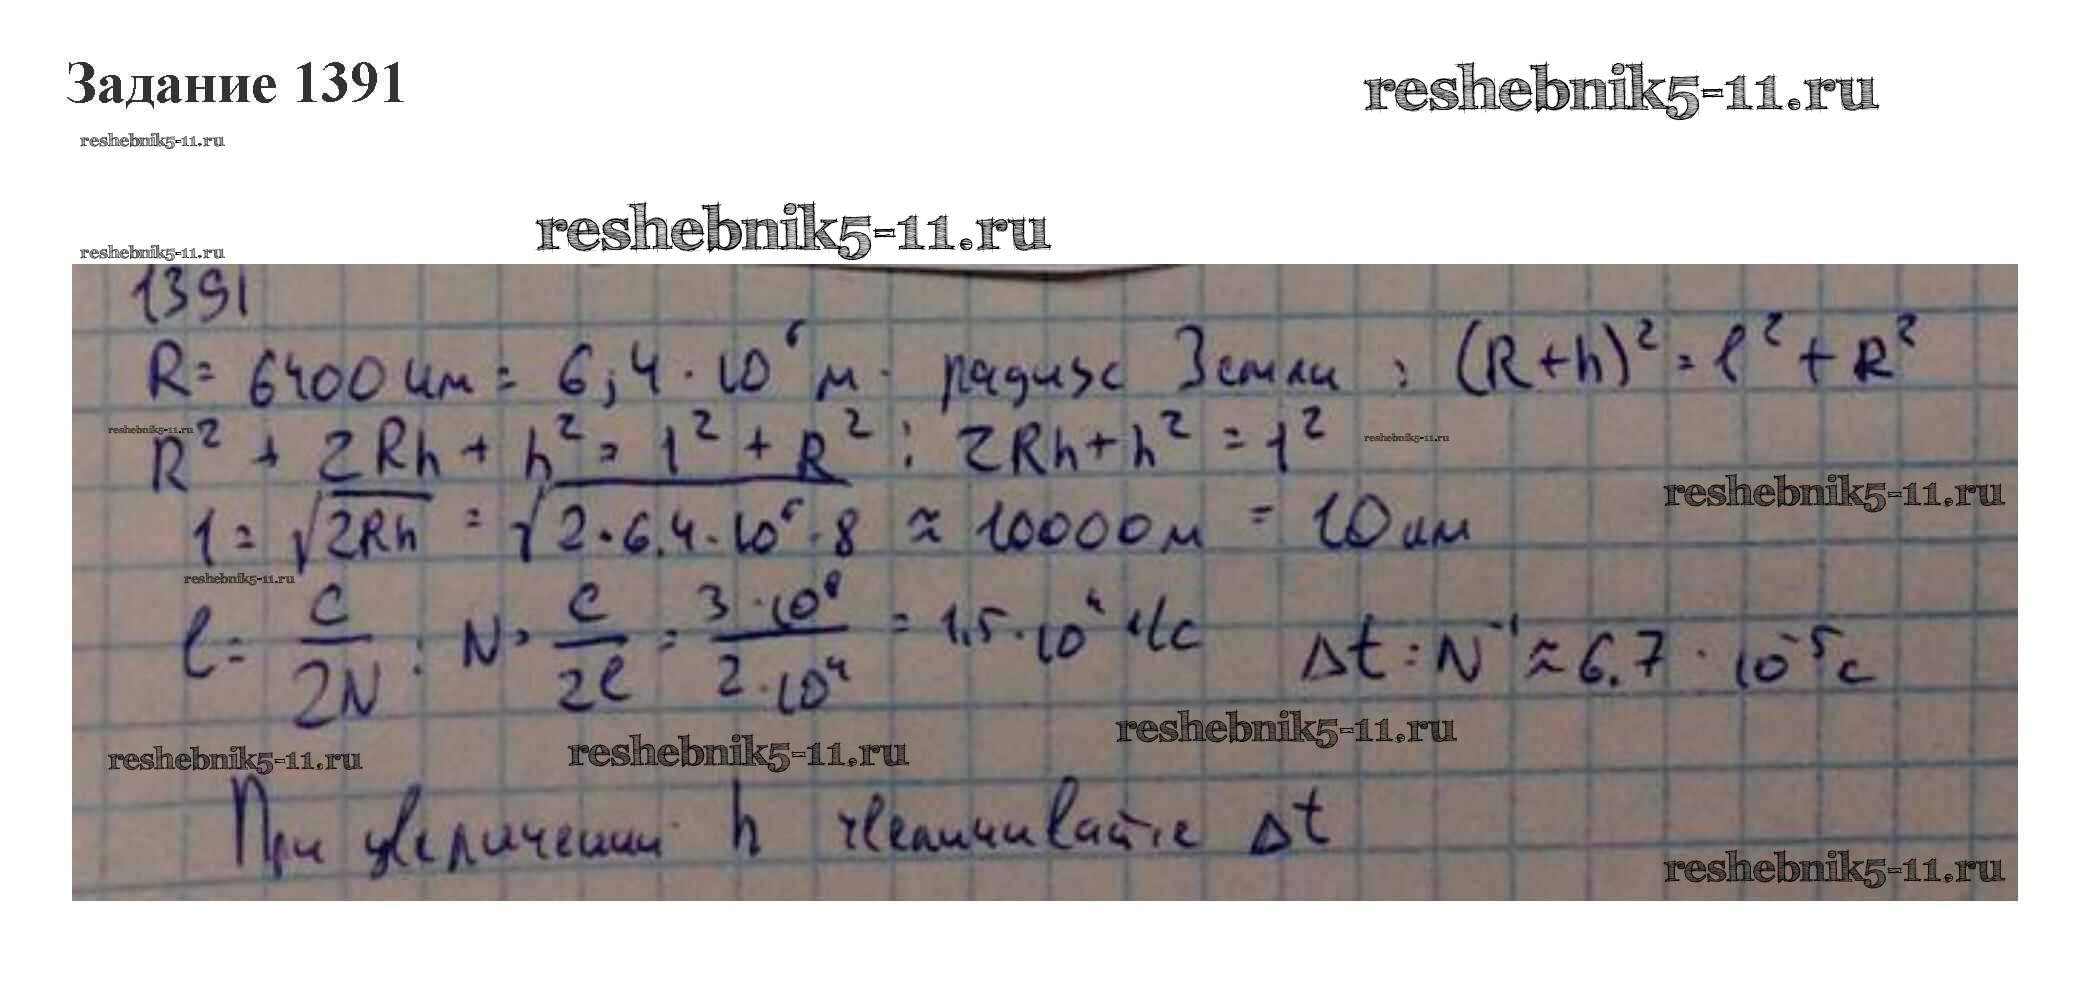 Задание 1391
reshebnik5-11.ru
reshebnik5-11.ru
reshebnik5-11.ru
reshebnik5-11.ru
1391
R = 6400 км = 6,4 · 10⁶ м - радиус Земли ; (R+h)² = l² + R²
reshebnik5-11.ru
R² + 2Rh + h² = l² + R² ; 2Rh + h² = l²
reshebnik5-11.ru
reshebnik5-11.ru
l = √2Rh = √2·6.4·10⁶·8 ≈ 10000 м = 10 км
reshebnik5-11.ru
l = c/2N ; N = c/2l = 3·10⁸/2·10⁴ = 1.5·10⁴ 1/с Δt = N⁻¹ ≈ 6.7 · 10⁻⁵ с
reshebnik5-11.ru
reshebnik5-11.ru
reshebnik5-11.ru
При увеличении h Δt
reshebnik5-11.ru